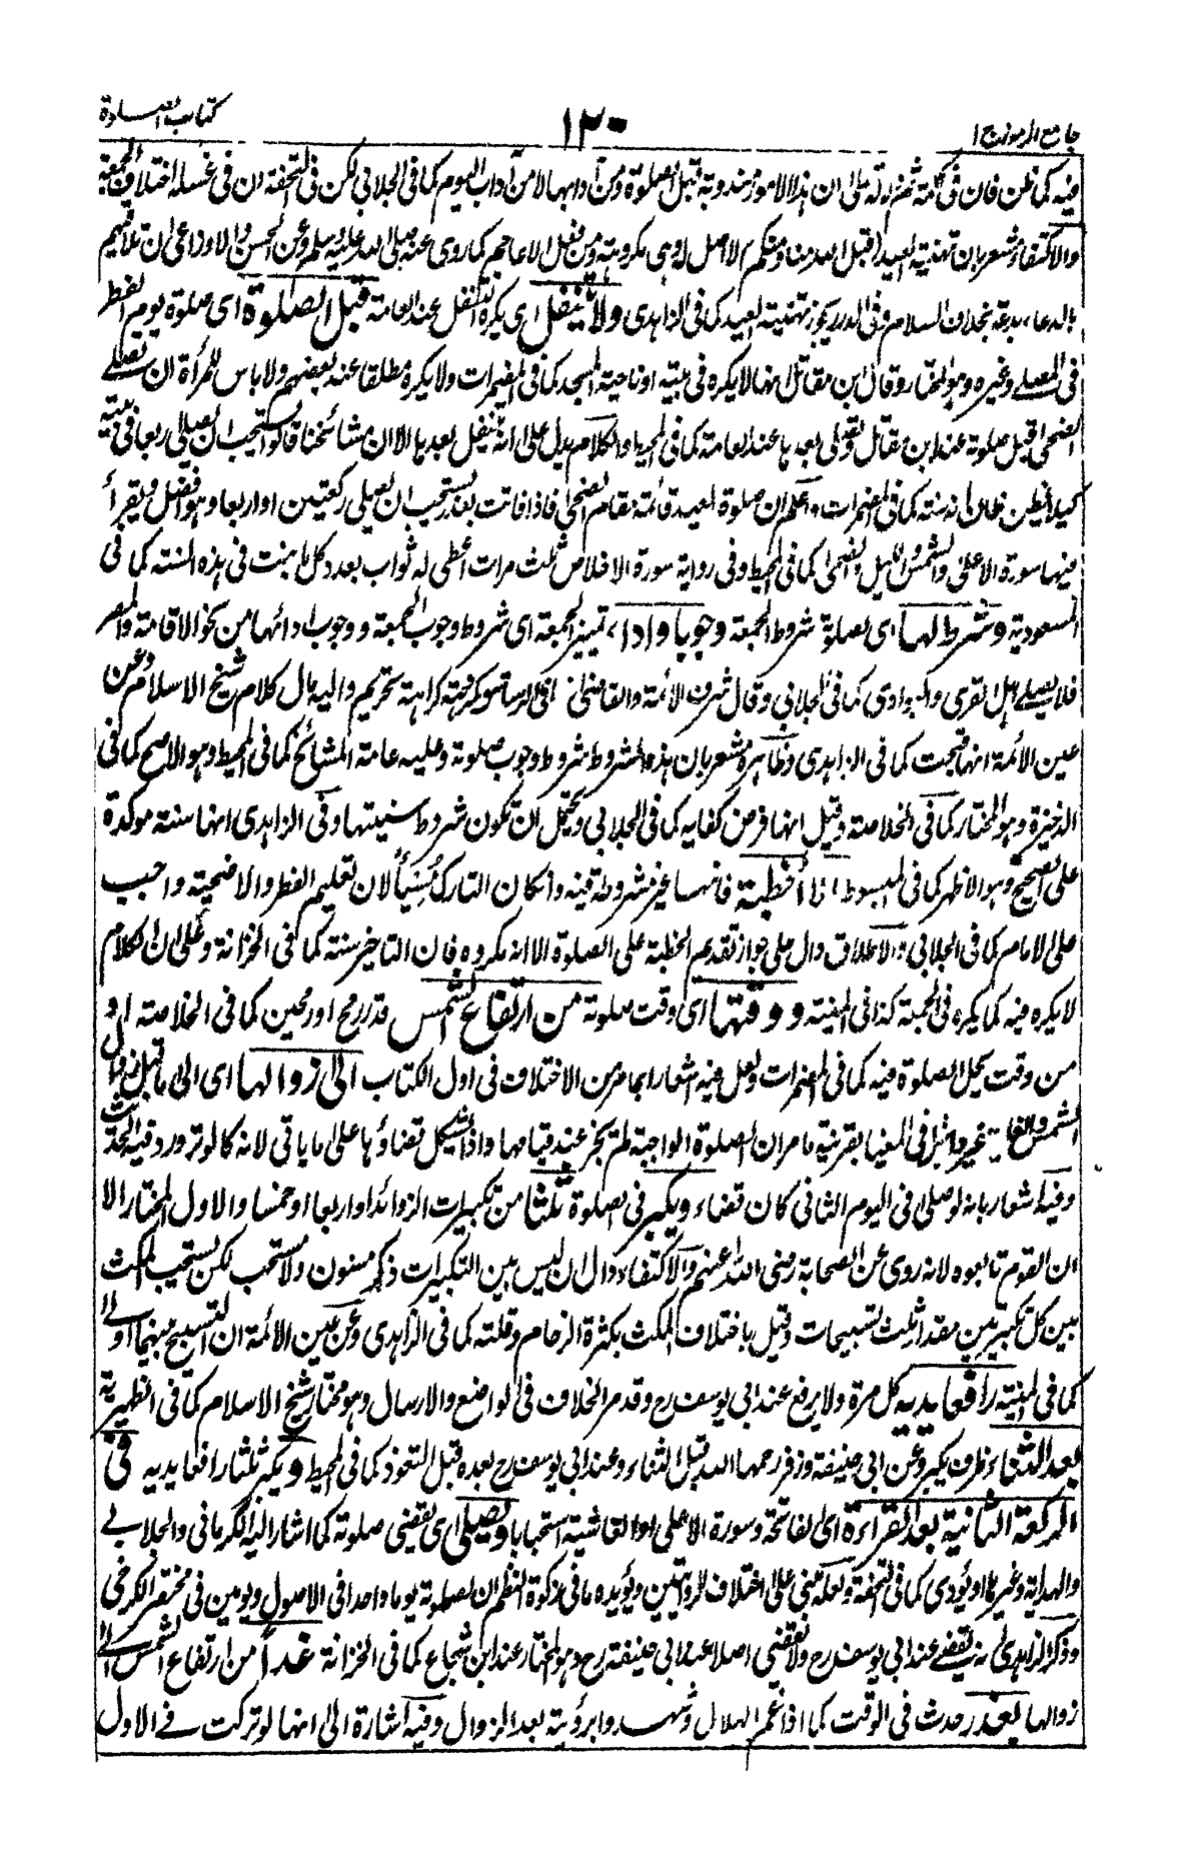 جامع الرموز ج ١
١٣٠
كتاب الصلوة
فيه كما ظن فان في كلمة ثم دلالة على ان هذا الامور مندوبة قبل الصلوة ومن آدابها لا من آداب اليوم كما في الجلابي لكن في التحفة ان في غسله اختلاف الجمعة
والاكتفاء مشعر بان تهنية العيد تقبل الله منا ومنكم لا اصل له وهي مكروهة ومن فعل الاعاجم كما روى عنه صلى الله عليه وسلم وعن الحسن والاوزاعي ان تلاقيهم
بالدعاء بدعة بخلاف السلام وفي الدرر يجوز تهنية العيد كما في الزاهدي ولا يتنفل اي يكره التنفل عند العامة قبل الصلوة اى صلوة يوم الفطر
في المصلى وغيره وهو المختار وقال ابن مقاتل انها لا يكره في بيته او ناحية المسجد كما في المضمرات ولا يكره مطلقا عند بعضهم ولا باس للمرأة ان تصلي
الضحى قبل صلوته عند ابن مقاتل وتصلى بعدها عند العامة كما في المحيط والكلام يدل على انه يتنفل بعدها الا ان مشائخنا قالوا يستحب ان يصلى اربعا في بيته
كيلا يظن ظان انه سنة كما في المضمرات واعلم ان صلوة العيد قائمة مقام الضحى فاذا فاتت بعذر يستحب ان يصلى ركعتين او اربعا وهو افضل ويقرأ
فيها سورة الاعلى والشمس والليل والضحى كما في المحيط وفي رواية سورة الاخلاص ثلث مرات اعطى له ثواب بعدد كل ما نبت في هذه السنة كما في
المسعودية وشرط لها اى لصلوة شروط الجمعة وجوبا واداء تمييز الجمعة اى شروط وجوب الجمعة ووجوب ادائها من نحو الاقامة والمصر
فلا يصلى اهل القرى والبوادى كما في الجلابي وقال شرف الائمة والقاضى في الرساتيق مكروهة كراهة تحريم واليه مال كلام شيخ الاسلام وعن
عين الائمة انها فتحت كما في الزاهدى وظاهره مشعر بان هذه الشروط شروط وجوب صلوته وعليه عامة المشائخ كما في المحيط وهو الاصح كما في
الذخيرة وهو المختار كما في الخلاصة وقيل انها فرض كفاية كما في الجلابي ويحتمل ان تكون شروط سنيتها وفي الزاهدى انها سنة موكدة
على الصحيح وهو الاظهر كما في المبسوط الا الخطبة فانها غير مشروطة فيه وان كان التارك مُسِيأً لان تعليم الفطر والاضحية واجب
على الامام كما في الجلابي والاطلاق دال على جواز تقديم الخطبة على الصلوة الا انه مكروه فان التاخير سنة كما في الخزانة وعلى ان الكلام
لا يكره فيه كما يكره في الجمعة كذا في المنية ووقتها اى وقت صلوته من ارتفاع الشمس قدر رمح او رمحين كما في الخلاصة او
من وقت يحل الصلوة فيه كما في المضمرات ولعل فيه اشعارا بما مر من الاختلاف في اول الكتاب الى زوالها اى الى ما قبل زوال
الشمس والغاية غير داخل في المغيا بقرينة ما مر ان الصلوة الواجبة لم تجز عند قيامها واذا اشكل قضاؤها على ما ياتي لانه كالوتر ورد فيه الحديث
وفيه اشعار بانه لو صلى في اليوم الثاني كان قضاء ويكبر في الصلوة ثلثا من تكبيرات الزوائد او اربعا او خمسا والاول المختار الا
ان القوم تابعوه لانه روى عن الصحابة رضى الله عنهم والاكتفاء دال ان ليس بين التكبيرات ذكر مسنون ولا مستحب لكن يستحب المكث
بين كل تكبيرتين مقدار ثلث تسبيحات وقيل باختلاف المكث بكثرة الزحام وقلته كما في الزاهدى وعن عين الائمة ان التسبيح بينهما اولى
كما في المنية رافعا يديه كل مرة ولا يرفع عند ابي يوسف رح وقد مر الخلاف في الواضع والارسال وهو مختار شيخ الاسلام كما في الظهيرية
بعد الثناء ظرف يكبر وعن ابي حنيفة وزفر رحمهما الله قبل الثناء وعند ابي يوسف رح بعده قبل التعوذ كما في المحيط ويكبر ثلثا رافعا يديه في
الركعة الثانية بعد القراءة اى الفاتحة وسورة الاعلى او الغاشية استحبابا ويصلى اى يقضى صلوته كما اشار اليه الكرماني والجلابي
والهداية وغيرها او يؤدى كما في التحفة ولعله مبنى على اختلاف الروايتين ويؤيده ما في زكوة النظم ان لصلوته يوما واحدا في الاصول ويومين في مختصر الكرخى
وذكر الزاهدى انه يقضى عند ابي يوسف رح ولا يقضى اصلا عند ابي حنيفة رح وهو المختار عند ابن شجاع كما في الخزانة غداً من ارتفاع الشمس الى
زوالها لعذر حدث في الوقت كما اذا غم الهلال وشهدوا برؤية بعد الزوال وفيه اشارة الى انها لو تركت في الاول